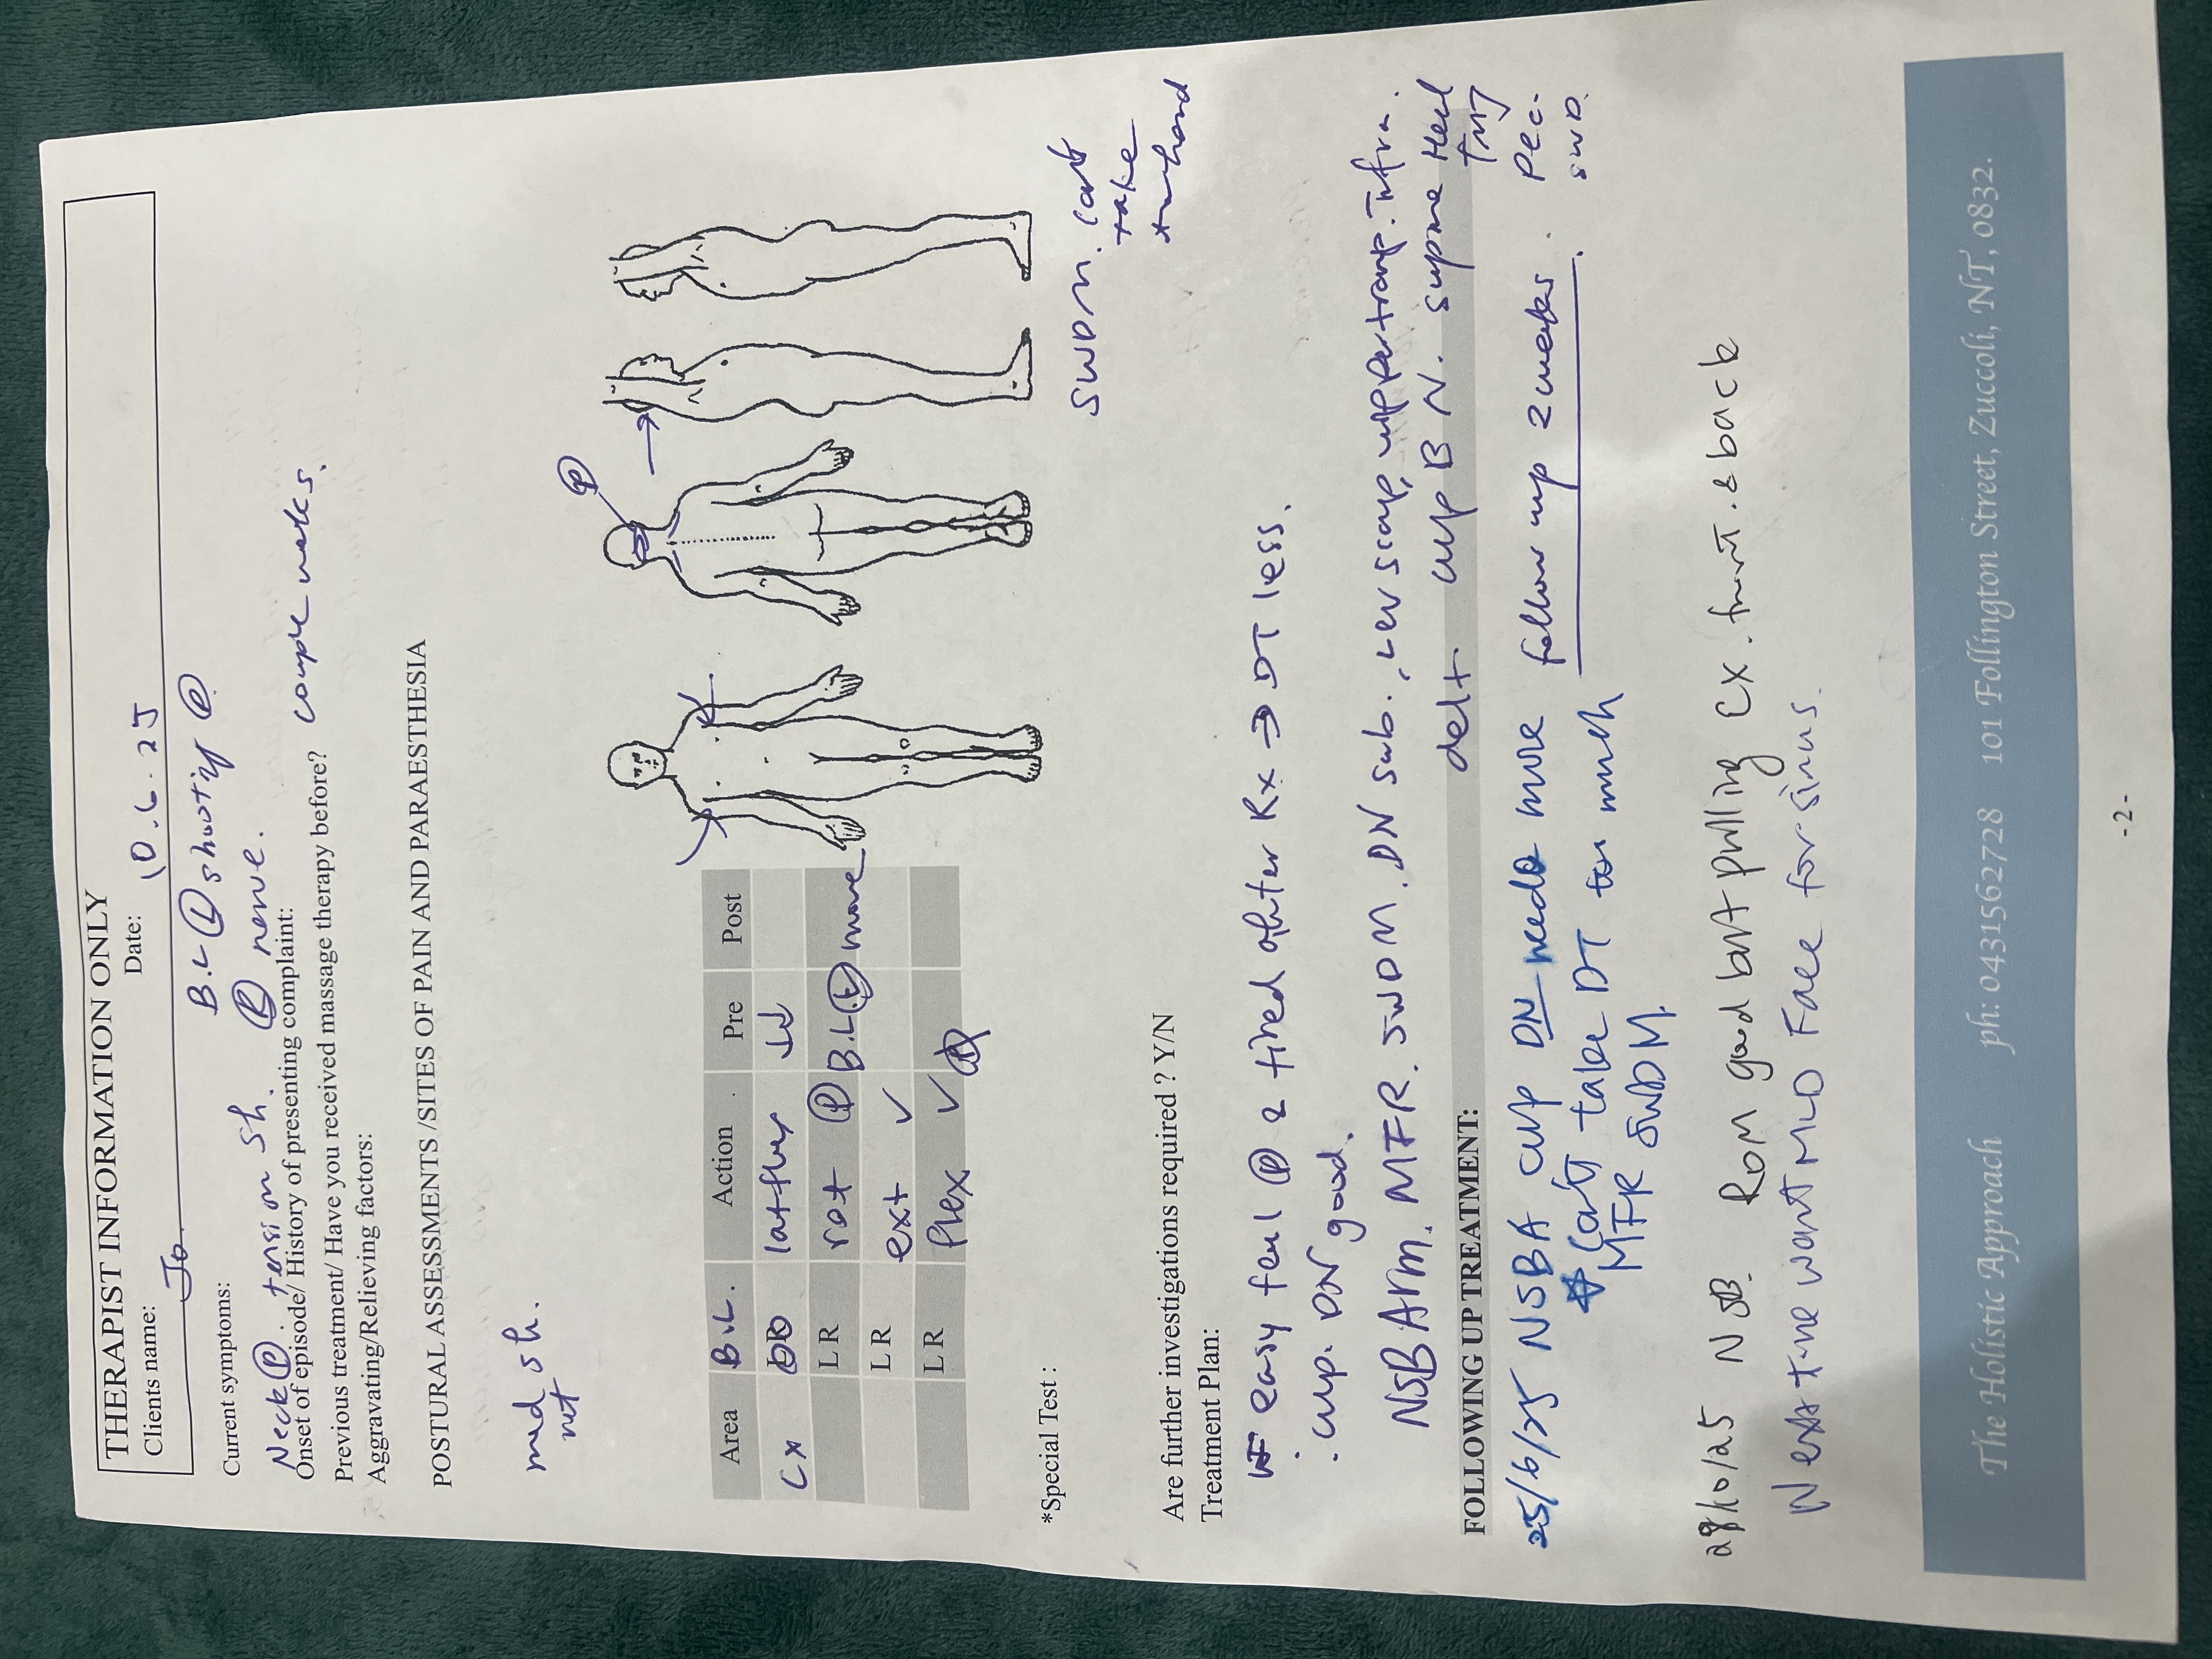 THERAPIST INFORMATION ONLY
Clients name: Jo. Date: 10.6.25
Current symptoms: B.L Ⓛ shooting Ⓟ
Neck Ⓟ. tension sh. Ⓟ nerve.
Onset of episode/ History of presenting complaint: couple weeks.
Previous treatment/ Have you received massage therapy before?
Aggravating/Relieving factors:
POSTURAL ASSESSMENTS /SITES OF PAIN AND PARAESTHESIA
med sh.
Ⓟ
Area B.L. Action Pre Post
Cx lat flex ↓↓
L R rot Ⓟ B.L Ⓛ more
L R ext ✓
L R flex ✓
SWDM. can't
take
*Special Test :
Are further investigations required ? Y/N
Treatment Plan:
easy feel Ⓟ & tired after Rx → DT less.
cup. DN good.
NSB Arm. MFR. SWDM. DN sub. Lev scap, upper trap. Infra.
delt cup B N. supine Head
TMJ
FOLLOWING UP TREATMENT:
Pec.
SWD.
25/6/25 NSBA cup DN need more follow up 2 weeks.
can't take DT too much
MFR SWDM.
28/10/25 NSB. ROM good but pulling Cx. front. & back
Next time want MLD Face for sinus.
The Holistic Approach ph: 0431562728 101 Follington Street, Zuccoli, NT, 0832.
-2-